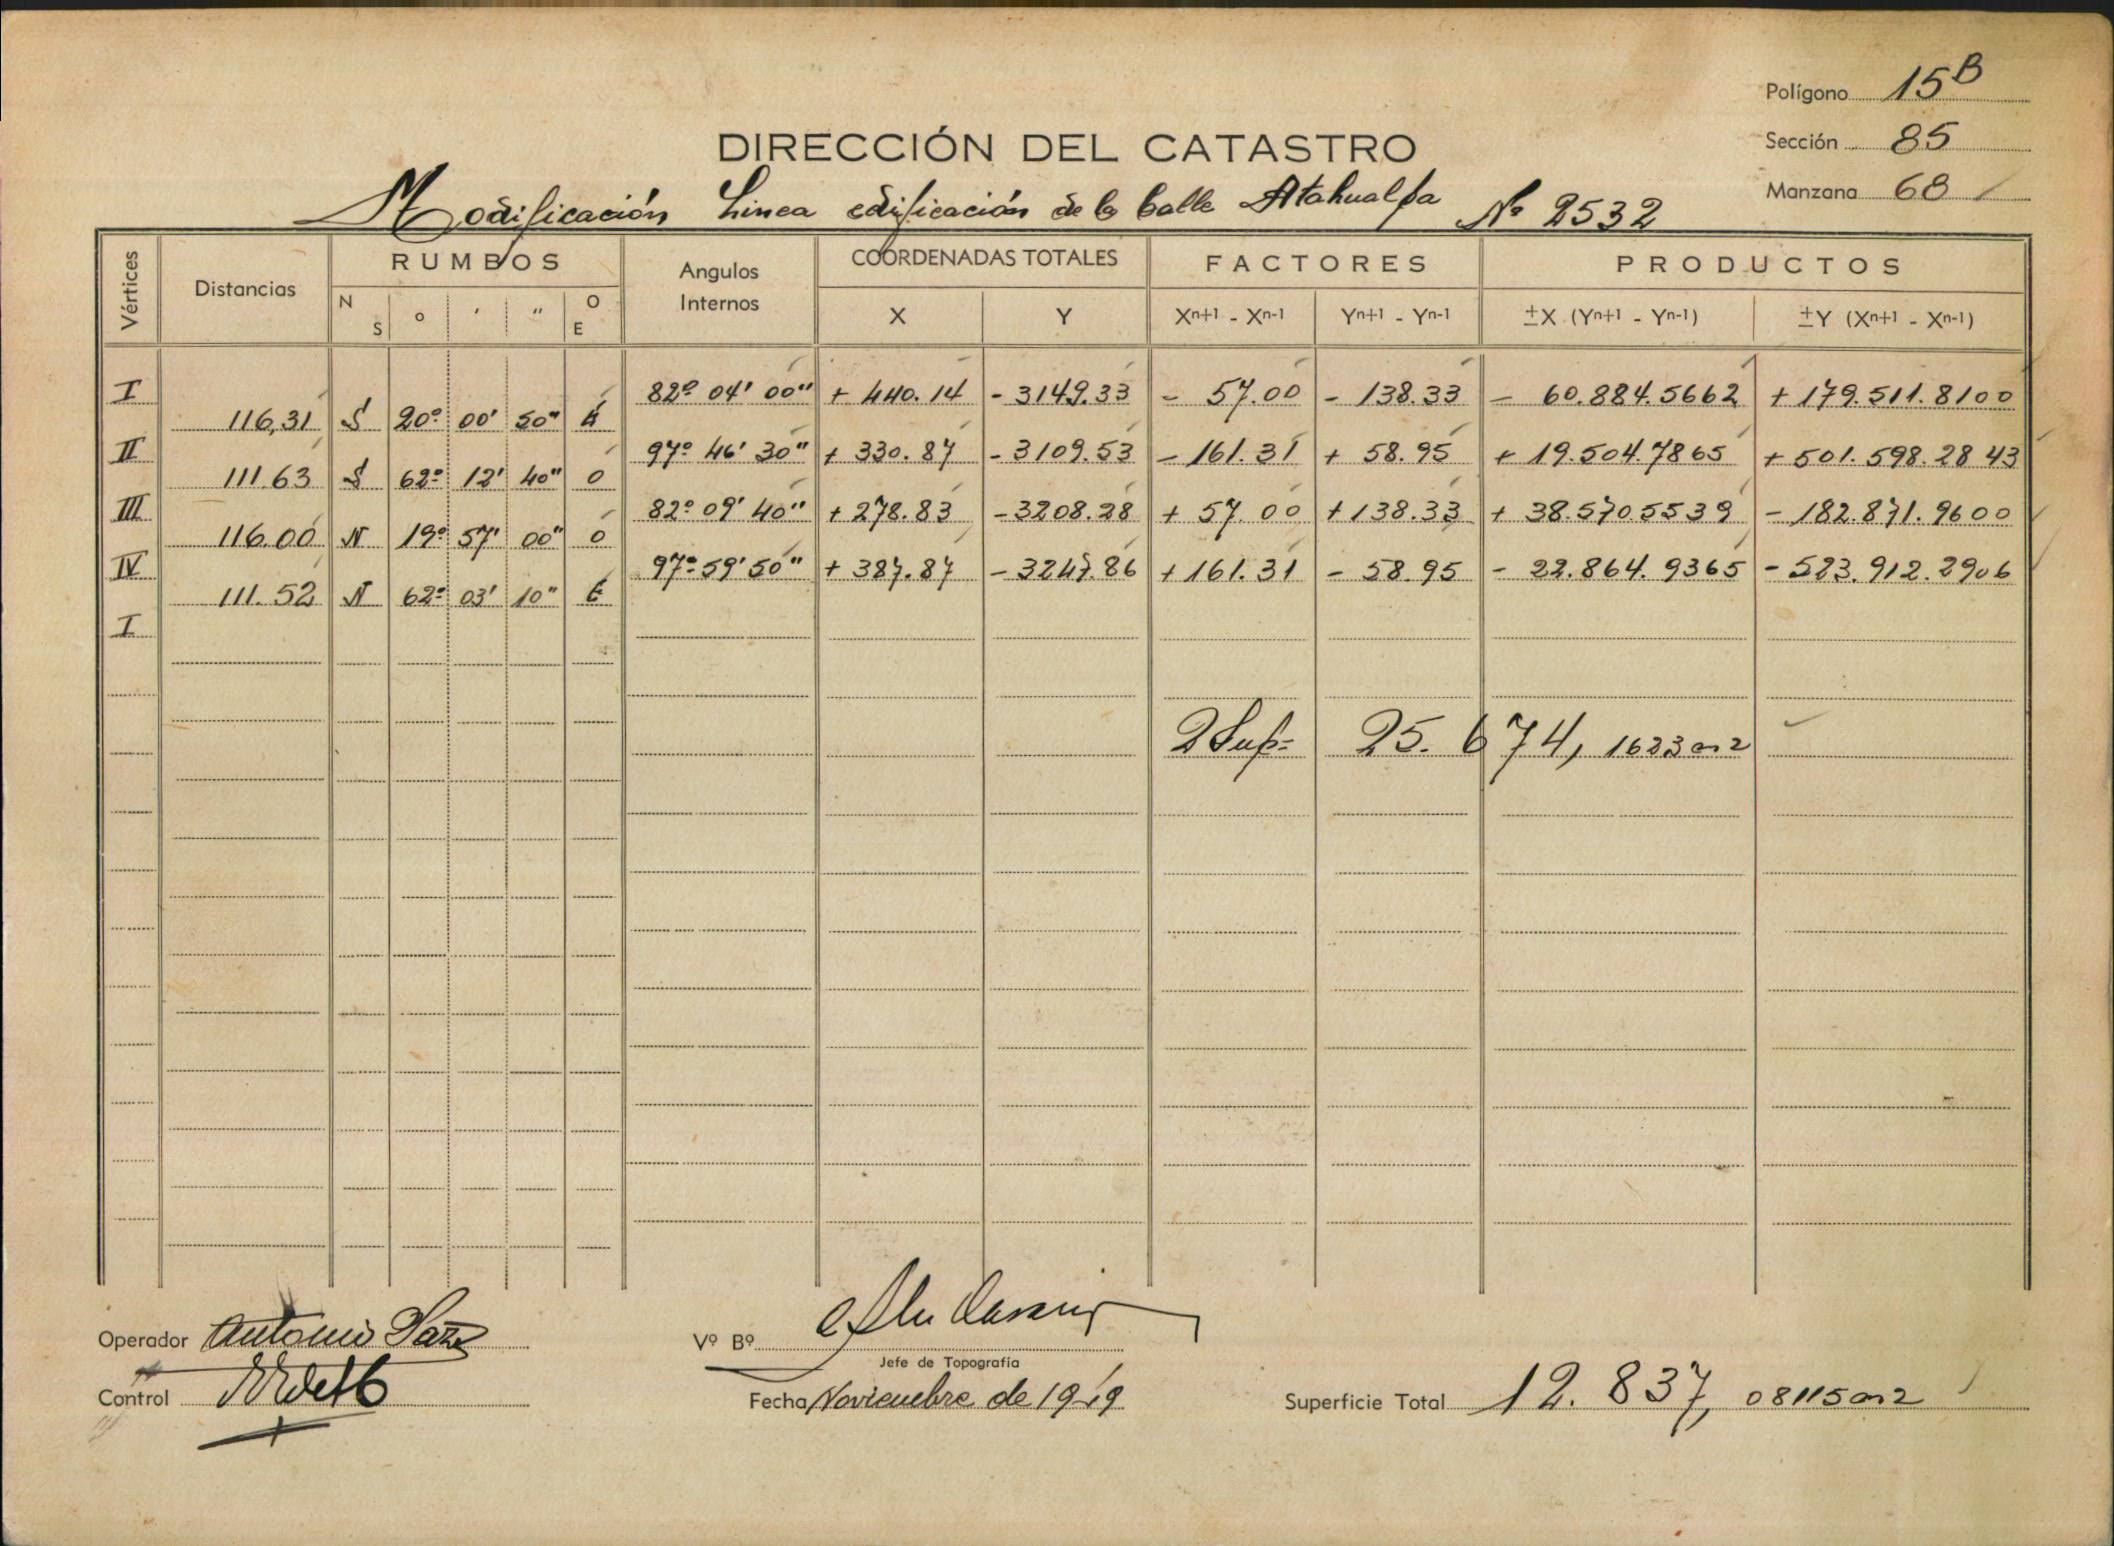 Polígono 15B
DIRECCIÓN DEL CATASTRO
Sección 85
Manzana 68
Modificación Linea edificación de la Calle Atahualpa Nº 2532
Vértices Distancias RUMBOS Angulos Internos COORDENADAS TOTALES FACTORES PRODUCTOS
N S º ' " O E X Y Xn+1 - Xn-1 Yn+1 - Yn-1 ±X (Yn+1 - Yn-1) ±Y (Xn+1 - Xn-1)
I 82º 04' 00" + 440.14 - 3149.33 - 57.00 - 138.33 - 60.884.5662 + 179.511.8100
116,31 S 20º 00' 50" E
II 97º 46' 30" + 330.87 - 3109.53 - 161.31 + 58.95 + 19.504.7865 + 501.598.2843
111.63 S 62º 12' 40" O
III 82º 09' 40" + 278.83 - 3208.28 + 57.00 + 138.33 + 38.570.5539 - 182.871.9600
116.00 N 19º 57' 00" O
IV 97º 59' 50" + 387.87 - 3247.86 + 161.31 - 58.95 - 22.864.9365 - 523.912.2906
111.52 N 62º 03' 10" E
I
2 Sup= 25.674,1623 m2
Operador Antonio
Vº Bº
Jefe de Topografía
Control
Fecha Noviembre de 1949
Superficie Total 12.837,08115 m2